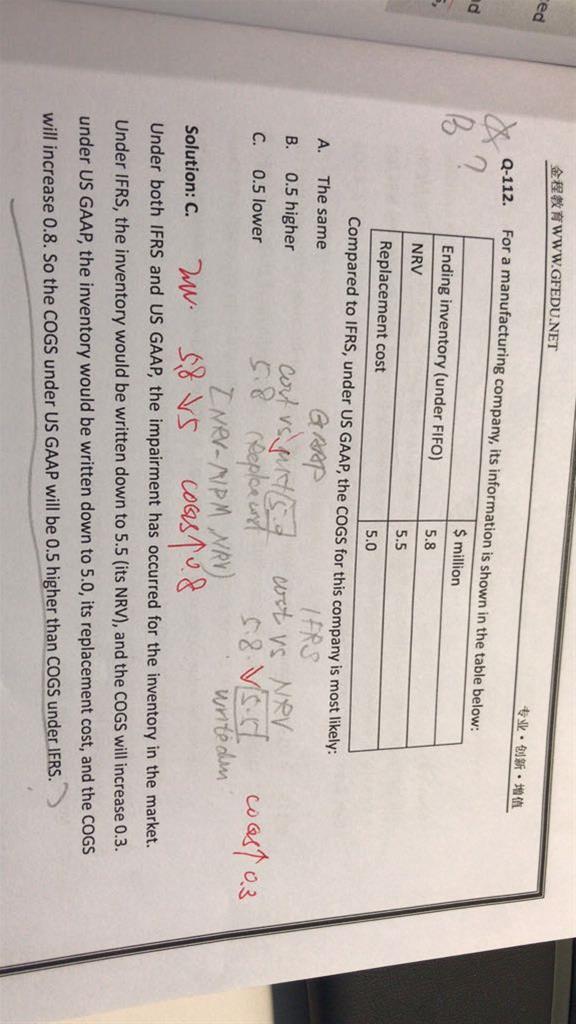 ed
nd
金程教育WWW.GFEDU.NET
专业·创新·增值
?
B
Q-112. For a manufacturing company, its information is shown in the table below:
$ million
Ending inventory (under FIFO) 5.8
NRV 5.5
Replacement cost 5.0
Compared to IFRS, under US GAAP, the COGS for this company is most likely:
A. The same
B. 0.5 higher
C. 0.5 lower
GAAP IFRS
cost vs cost vs NRV
5.8 5.8 5.5
COGS↑ 0.3
NRV)
Solution: C.
5.8 5 COGS↑0.8
Under both IFRS and US GAAP, the impairment has occurred for the inventory in the market.
Under IFRS, the inventory would be written down to 5.5 (its NRV), and the COGS will increase 0.3.
under US GAAP, the inventory would be written down to 5.0, its replacement cost, and the COGS
will increase 0.8. So the COGS under US GAAP will be 0.5 higher than COGS under IFRS.